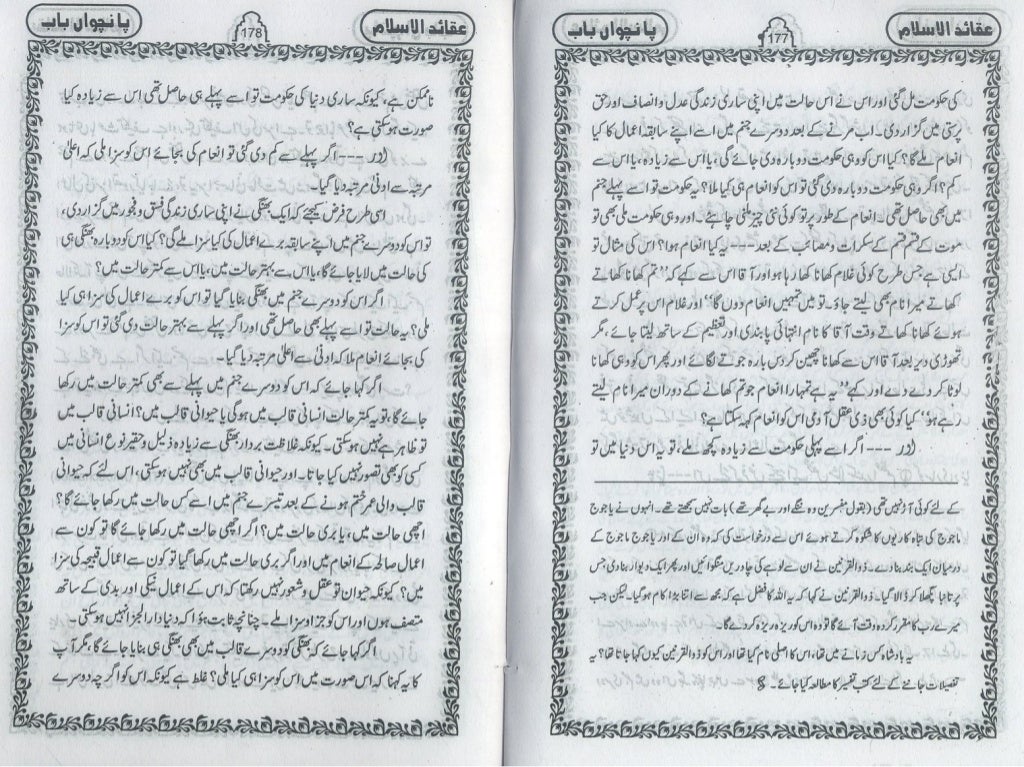 عقائد الاسلام
177
پانچواں باب
کی حکومت مل گئی اور اس نے اس حالت میں اپنی ساری زندگی عدل و انصاف اور حق
پرستی میں گزار دی۔ اب مرنے کے بعد دوسرے جنم میں اسے اپنے سابقہ اعمال کا کیا
انعام ملے گا؟ کیا اس کو وہی حکومت دوبارہ دی جائے گی، یا اس سے زیادہ، یا اس سے
کم؟ اگر وہی حکومت دوبارہ دی گئی تو اس کو انعام ہی کیا ملا؟ یہ حکومت تو اسے پہلے جنم
میں بھی حاصل تھی۔ انعام کے طور پر تو کوئی نئی چیز ملنی چاہئے۔ اور وہی حکومت ملی بھی تو
موت کے قسم قسم کے سکرات و مصائب کے بعد --- یہ کیا انعام ہوا؟ اس کی مثال تو
ایسی ہے جس طرح کوئی غلام کھانا کھا رہا ہو اور آقا اس سے کہے کہ ”تم کھانا کھاتے
کھاتے میرا نام بھی لیتے جاؤ، تو میں تمہیں انعام دوں گا“ اور غلام اس پر عمل کرتے
ہوئے کھانا کھاتے وقت آقا کا نام انتہائی پابندی اور تعظیم کے ساتھ لیتا جائے، مگر
تھوڑی دیر بعد آقا اس سے کھانا چھین کر دس بارہ جوتے لگائے اور پھر اس کو وہی کھانا
لوٹا کر دے دے اور کہے ”یہ ہے تمہارا انعام جو تم کھانے کے دوران میرا نام لیتے
رہے ہو“ کیا کوئی بھی ذی عقل آدمی اس کو انعام کہہ سکتا ہے؟
اور --- اگر اسے پہلی حکومت سے زیادہ کچھ ملے، تو یہ اس دنیا میں تو
کے لئے کوئی آڑ نہیں تھی (بقول مفسرین وہ ننگے اور بے گھر تھے) بات نہیں سمجھتے تھے۔ انہوں نے یاجوج
ماجوج کی تباہ کاریوں کا شکوہ کرتے ہوئے اس سے درخواست کی کہ وہ ان کے اور یاجوج ماجوج کے
درمیان ایک بند بنا دے۔ ذوالقرنین نے ان سے لوہے کی چادریں منگوائیں اور پھر ایک دیوار بنا دی جس
پر تانبا پگھلا کر ڈالا گیا۔ ذوالقرنین نے کہا کہ یہ اللہ کا فضل ہے کہ مجھ سے اتنا بڑا کام ہو گیا۔ لیکن جب
میرے رب کا مقرر کردہ وقت آئے گا تو وہ اس کو ریزہ ریزہ کر دے گا۔
یہ بادشاہ کس زمانے میں تھا، اس کا اصلی نام کیا تھا اور اس کو ذوالقرنین کیوں کہا جاتا تھا؟ یہ
تفصیلات جاننے کے لئے کتب تفسیر کا مطالعہ کیا جائے۔
عقائد الاسلام
178
پانچواں باب
ناممکن ہے، کیونکہ ساری دنیا کی حکومت تو اسے پہلے ہی حاصل تھی اس سے زیادہ کیا
صورت ہو سکتی ہے؟
اور --- اگر پہلے سے کم دی گئی تو انعام کی بجائے اس کو سزا ملی کہ اعلیٰ
مرتبہ سے ادنیٰ مرتبہ دیا گیا۔
اسی طرح فرض کیجئے کہ ایک بھنگی نے اپنی ساری زندگی فسق و فجور میں گزار دی،
تو اس کو دوسرے جنم میں اپنے سابقہ برے اعمال کی کیا سزا ملے گی؟ کیا اس کو دوبارہ بھنگی ہی
کی حالت میں لایا جائے گا، یا اس سے بہتر حالت میں، یا اس سے کمتر حالت میں؟
اگر اس کو دوسرے جنم میں بھنگی بنایا گیا تو اس کو برے اعمال کی سزا ہی کیا
ملی؟ یہ حالت تو اسے پہلے بھی حاصل تھی اور اگر پہلے سے بہتر حالت دی گئی تو اس کو سزا
کی بجائے انعام ملا کہ ادنیٰ سے اعلیٰ مرتبہ دیا گیا۔
اگر کہا جائے کہ اس کو دوسرے جنم میں پہلے سے بھی کمتر حالت میں رکھا
جائے گا، تو یہ کمتر حالت انسانی قالب میں ہوگی یا حیوانی قالب میں؟ انسانی قالب میں
تو ظاہر ہے نہیں ہو سکتی۔ کیونکہ غلاظت بردار بھنگی سے زیادہ ذلیل و حقیر نوع انسانی میں
کسی کو بھی تصور نہیں کیا جاتا۔ اور حیوانی قالب میں بھی نہیں ہو سکتی، اس لئے کہ حیوانی
قالب والی عمر ختم ہونے کے بعد تیسرے جنم میں اسے کس حالت میں رکھا جائے گا؟
اچھی حالت میں، یا بری حالت میں؟ اگر اچھی حالت میں رکھا جائے گا تو کون سے
اعمال صالحہ کے انعام میں اور اگر بری حالت میں رکھا گیا تو کون سے اعمال قبیحہ کی سزا
میں؟ کیونکہ حیوان تو عقل و شعور نہیں رکھتا کہ اس کے اعمال نیکی اور بدی کے ساتھ
متصف ہوں اور اس کو جزا و سزا ملے۔ چنانچہ ثابت ہوا کہ دنیا دار الجزا نہیں ہو سکتی۔
اگر کہا جائے کہ بھنگی کو دوسرے قالب میں بھی بھنگی ہی بنایا جائے گا، مگر آپ
کا یہ کہنا کہ اس صورت میں اس کو سزا ہی کیا ملی؟ غلط ہے کیونکہ اس کو اگر چہ دوسرے